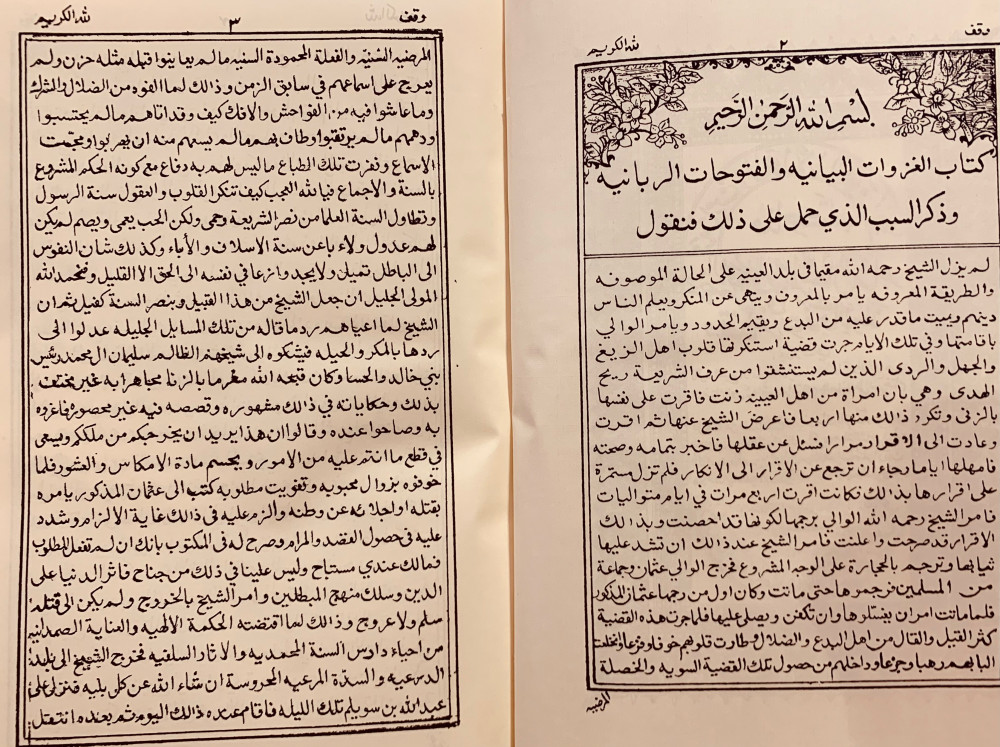 وقف
٢
لله الكريم
بسم الله الرحمن الرحيم
كتاب الغزوات البيانيه والفتوحات الربانيه
وذكر السبب الذي حمل على ذلك فنقول
لم يزل الشيخ رحمه الله مقيما في بلد العيينه على الحالة الموصوفه
والطريقة المعروفه يامر بالمعروف وينهى عن المنكر ويعلم الناس
دينهم ويميت ما قدر عليه من البدع ويقيم الحدود ويامر الوالي
باقامتها وفي تلك الايام جرت قضية استنكرتها قلوب اهل الزيغ
والجهل والردى الذين لم يستنشقوا من عرف الشريعة ريح
الهدى وهي بان امراة من اهل العيينه زنت فاقرت على نفسها
بالزنى وتكرر ذالك منها اربعا فاعرض الشيخ عنها ثم اقرت
وعادت الى الاقرار مرارا فسئل عن عقلها فاخبر بتمامه وصحته
فامهلها اياما رجاء ان ترجع عن الاقرار الى الانكار فلم تزل مستمرة
على اقرارها بذالك فكانت اقرت اربع مرات في ايام متواليات
فامر الشيخ رحمه الله الوالي برجمها لكونها قد احصنت وبذالك
الاقرار قد صرحت واعلنت فامر الشيخ عند ذالك ان تشد عليها
ثيابها وترجم بالحجارة على الوجه المشروع فخرج الوالي عثمان وجماعة
من المسلمين فرجموها حتى ماتت وكان اول من رجمها عثمان المذكور
فلما ماتت امر ان يغسلوها وان تكفن ويصلى عليها فلما جرت هذه القضية
كثر القيل والقال من اهل البدع والضلال وطارت قلوبهم خوفا وفزعا وانخلت
البابهم رهبا وجزعا وداخلهم من حصول تلك القضية السويه والخصلة
المرضيه
وقف
٣
لله الكريم
المرضيه السنيه والفعلة المحمودة السنيه مالم يعاينوا قبله مثله حزن ولم
يعرج على اسماعهم في سابق الزمن وذالك لما الفوه من الضلال والشرك
وما عاشوا فيه من الفواحش والافك كيف وقد اتاهم مالم يحتسبوا
ودهمهم مالم يرتقبوا وطاف بهم مالم يسمهم منه ان يهربوا ومجت
الاسماع ونفرت تلك الطباع ما ليس لهم به دفاع مع كونه الحكم المشروع
بالسنة والاجماع فيا لله العجب كيف تنكر القلوب والعقول سنة الرسول
وتطاول السنة العلما من نصر الشريعة وحمى ولكن الحب يعمى ويصم لم يكن
لهم عدول ولا باعن سنة الاسلاف والاباء وكذلك شان النفوس
الى الباطل تميلن ولا يجد وازعا في نفسه الى الحق الا القليل ونحمد الله
المولى الجليل ان جعل الشيخ من هذا القبيل وبنصر السنة كفيل ثم ان
الشيخ لما اعياهم رد ما قاله من تلك المسايل الجليله عدلوا الى
ردها بالمكر والحيله فشكوه الى شيخهم الظالم سليمان ال محمد رئيس
بني خالد والحسا وكان قبحه الله مغرما بالزنا مجاهرا به غير مختف
بذلك وحكاياته في ذالك مشهوره وقصصه فيه غير محصوره فاغروه
به وصاحوا عنده وقالوا ان هذا يريد ان يخرجكم من ملككم ويسعى
في قطع ما انتم عليه من الامور ويحسم مادة الامكاس والعشور فلما
خوفوه بزوال محبوبه وتفويت مطلوبه كتب الى عثمان المذكور يامره
بقتله او اجلائه عن وطنه والزم عليه في ذالك غاية الالزام وشدد
عليه في حصول القصد والمرام وصرح له في المكتوب بانك ان لم تفعل المطلوب
فمالك عندي مستباح وليس علينا في ذلك من جناح فاثر الدنيا على
الدين وسلك منهج المبطلين وامر الشيخ بالخروج ولم يكن الى قتله
سلم ولا عروج وذالك لما اقتضته الحكمة الالهيه والعناية الصمدانيه
من احياء دارس السنة المحمديه والاثار السلفيه فخرج الشيخ الى بلدة
الدرعيه والسدة المرعيه المحروسة ان شاء الله عن كل بليه فنزل على
عبد الله بن سويلم تلك الليله فاقام عنده ذالك اليوم ثم بعده انتقل